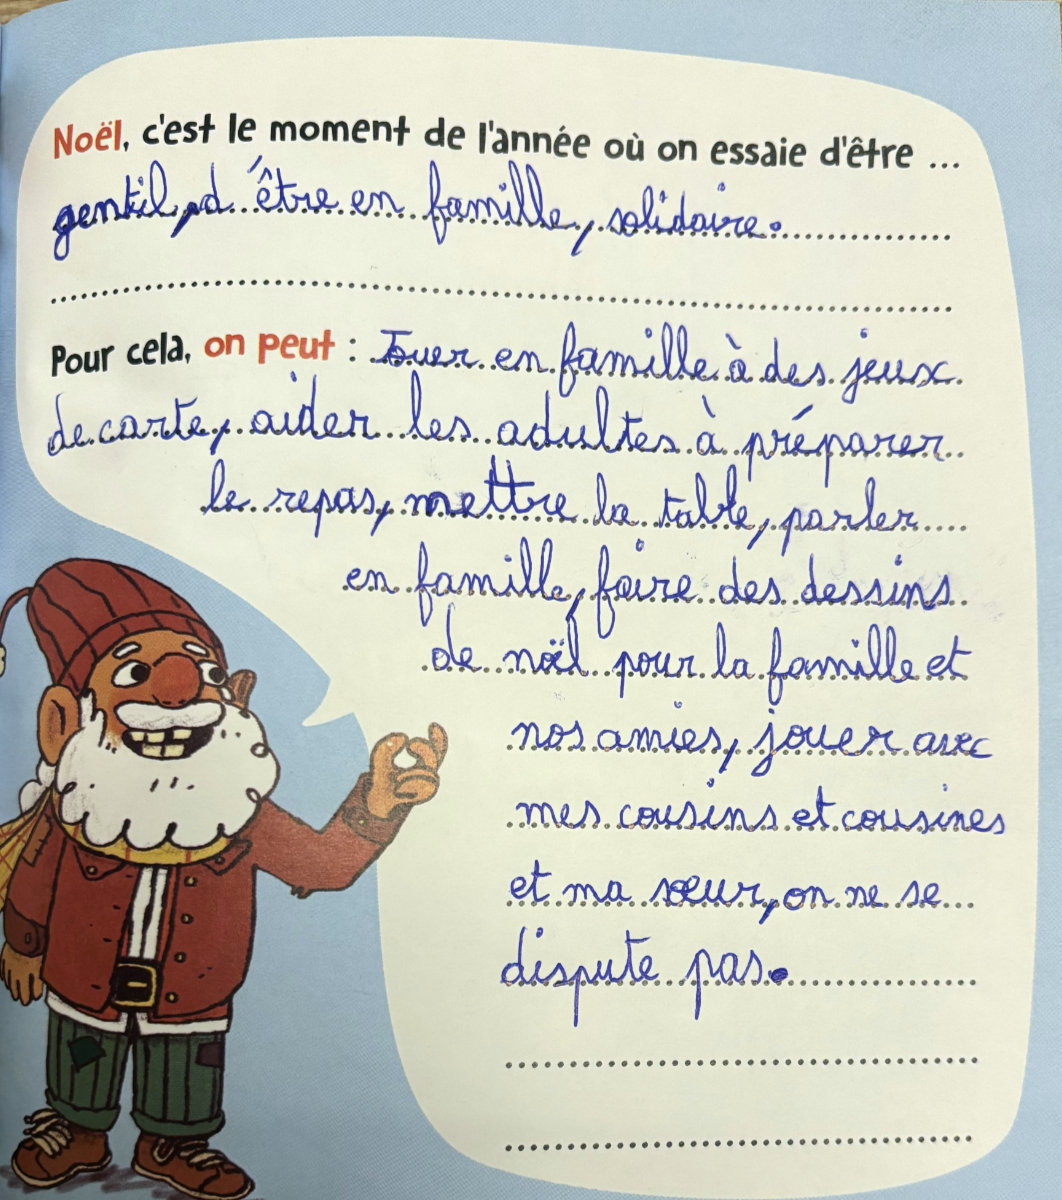 Noël, c'est le moment de l'année où on essaie d'être ...
gentil, d'être en famille, solidaire.
Pour cela, on peut : Jouer en famille à des jeux
de carte, aider les adultes à préparer
le repas, mettre la table, parler
en famille, faire des dessins
de noël pour la famille et
nos amies, jouer avec
mes cousins et cousines
et ma sœur, on ne se
dispute pas.